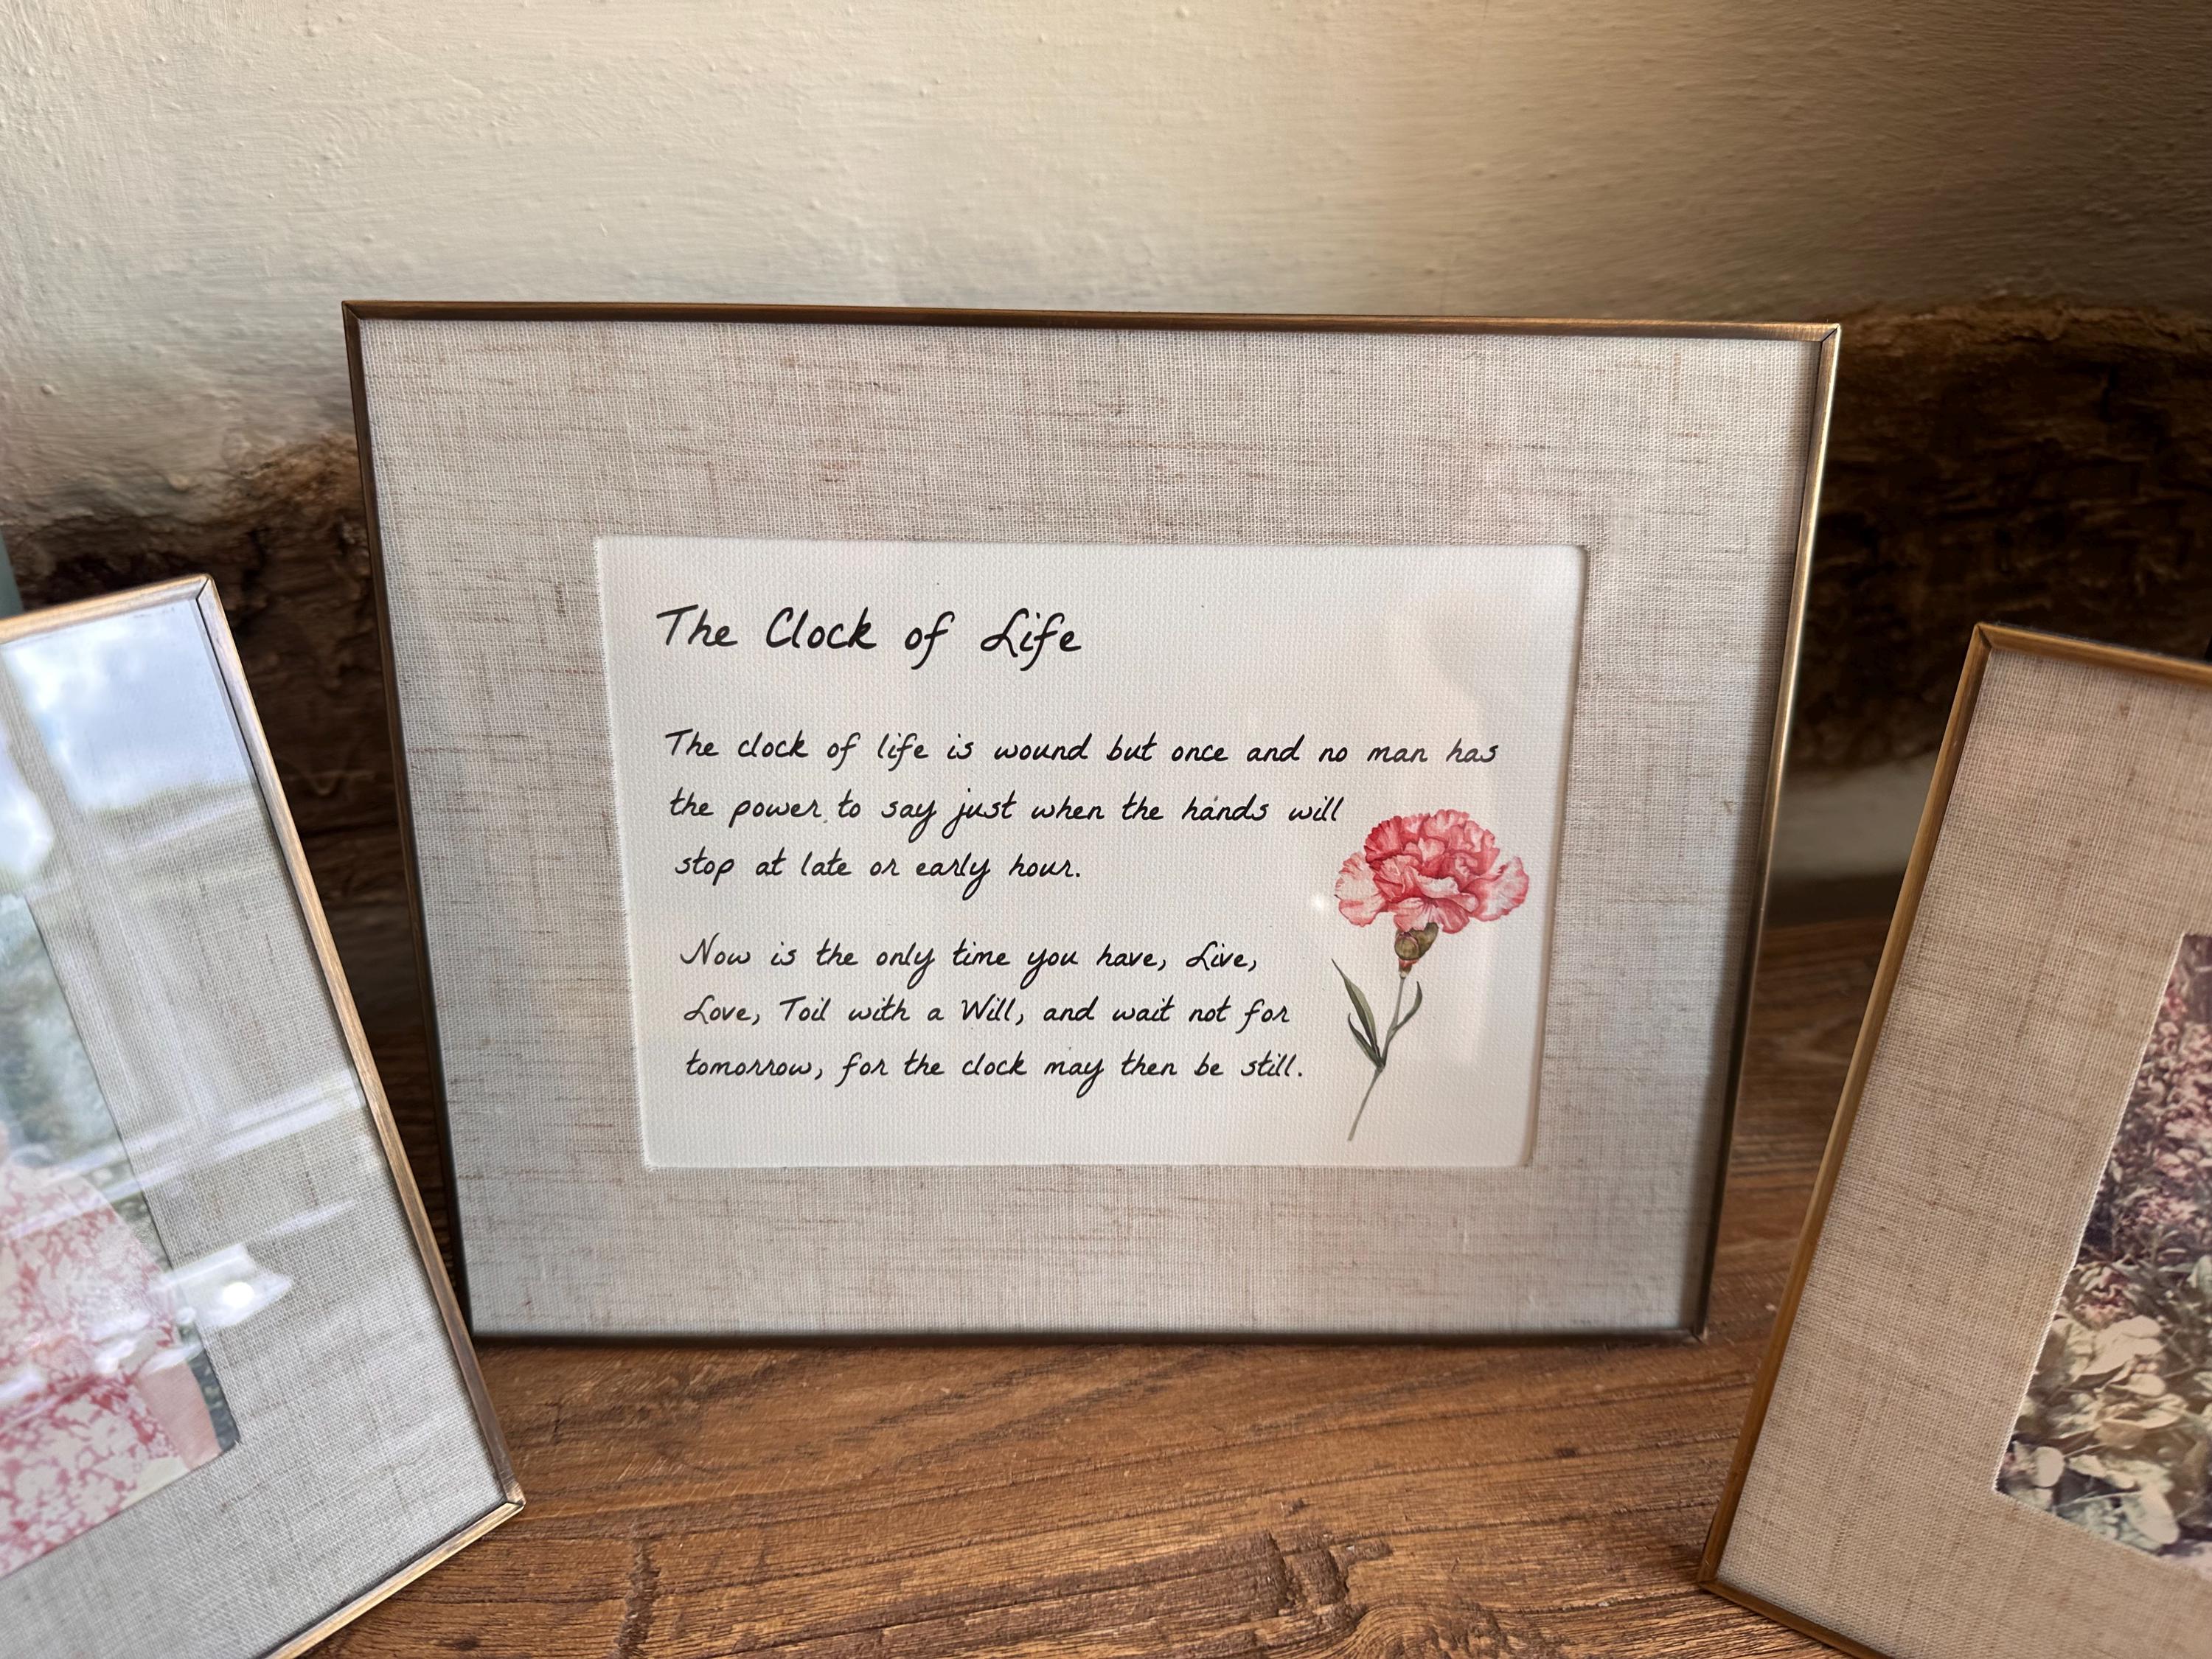 The Clock of Life
The clock of life is wound but once and no man has
the power to say just when the hands will
stop at late or early hour.
Now is the only time you have, Live,
Love, Toil with a Will, and wait not for
tomorrow, for the clock may then be still.